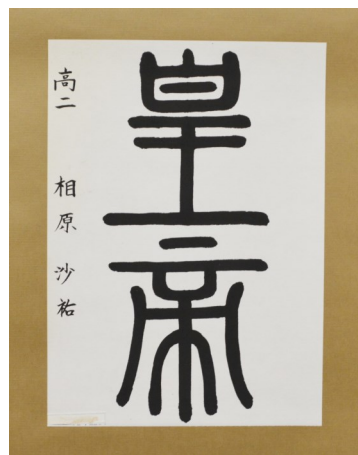 皇帝
高二 相原沙祐